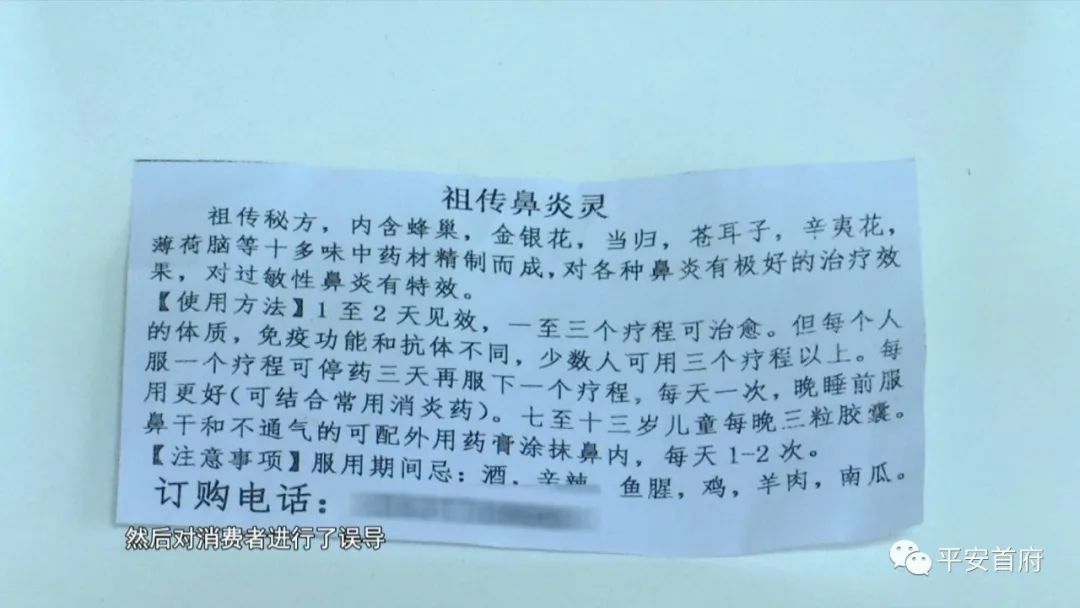 祖传鼻炎灵
祖传秘方，内含蜂巢，金银花，当归，苍耳子，辛夷花，
薄荷脑等十多味中药材精制而成，对各种鼻炎有极好的治疗效
果，对过敏性鼻炎有特效。
【使用方法】1至2天见效，一至三个疗程可治愈。但每个人
的体质，免疫功能和抗体不同，少数人可用三个疗程以上。每
服一个疗程可停药三天再服下一个疗程，每天一次，晚睡前服
用更好(可结合常用消炎药)。七至十三岁儿童每晚三粒胶囊。
鼻干和不通气的可配外用药膏涂抹鼻内，每天1-2次。
【注意事项】服用期间忌：酒，辛辣 鱼腥，鸡，羊肉，南瓜。
订购电话：
然后对消费者进行了误导
平安首府